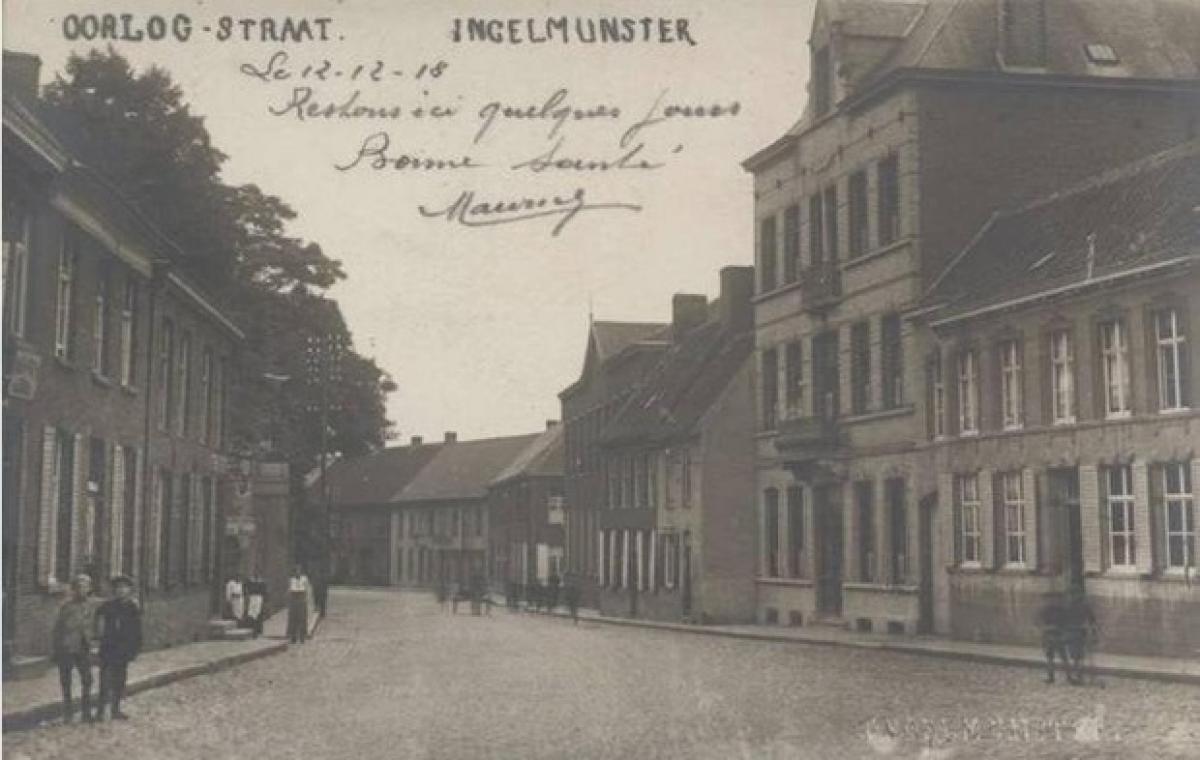 OORLOG-STRAAT. INGELMUNSTER
Le 12-12-18
Restons ici quelques jours
Bonne Santé
Maurice